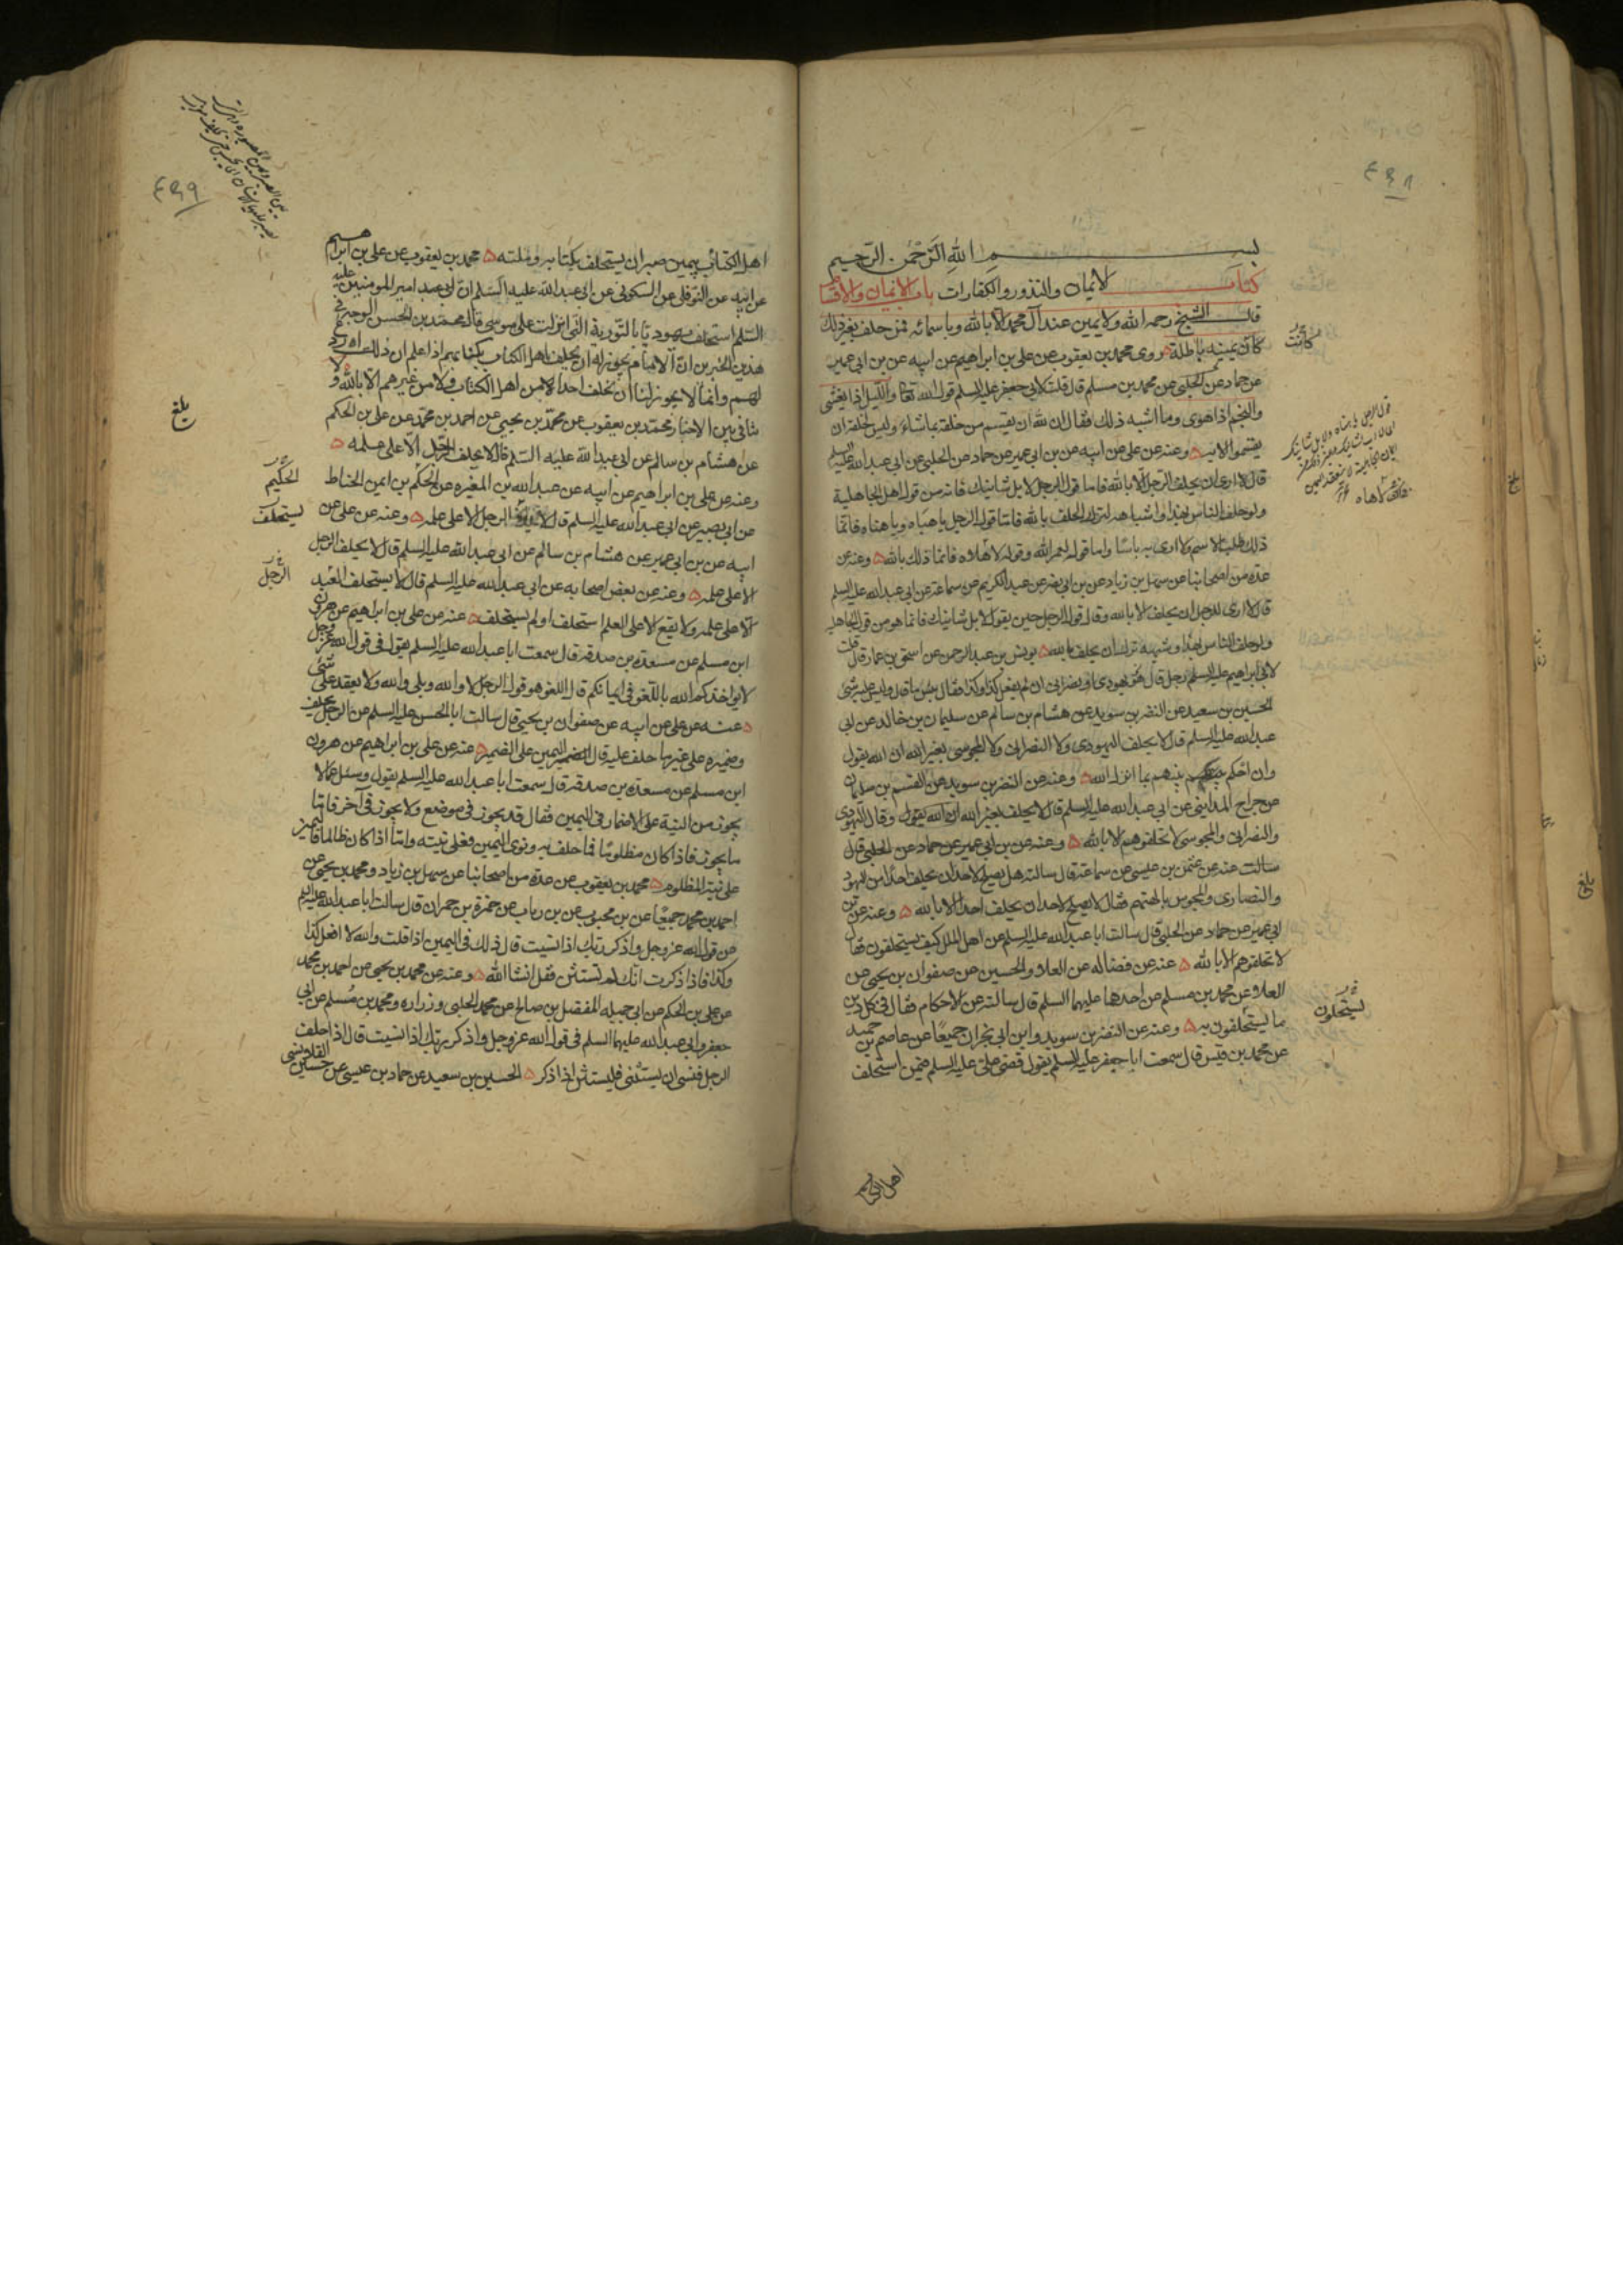 بسم الله الرحمن الرحيم
كتاب الايمان والنذور والكفارات باب الايمان والاقسام
قال الشيخ رحمه الله ولا يمين عند آل محمد الا بالله وباسمائه فمن حلف بغير ذلك
كان يمينه باطلة روى محمد بن يعقوب عن علي بن ابراهيم عن ابيه عن بن ابي عمير
عن حماد عن الحلبي عن محمد بن مسلم قال قلت لابي جعفر عليه السلم قول الله تعالى والليل اذا يغشى
والنجم اذا هوى وما اشبه ذلك فقال ان لله ان يقسم من خلقه بما شاء وليس لخلقه ان
يقسموا الا به وعنه عن علي عن ابيه عن بن ابي عمير عن حماد عن الحلبي عن ابي عبد الله عليه السلم
قال لا ارى ان يحلف الرجل الا بالله فاما قول الرجل لا بل شانيك فانه من قول اهل الجاهلية
ولو حلف الناس بهذا واشباهه لترك الحلف بالله فاما قول الرجل يا هياه ويا هناه فانما
ذلك طلب الاسم ولا ارى به باسا واما قوله لعمر الله وقوله لاهاه فانما ذلك بالله وعنه عن
عدة من اصحابنا عن سهل بن زياد عن بن ابي نصر عن عبد الكريم عن سماعة عن ابي عبد الله عليه السلم
قال لا ارى للرجل ان يحلف الا بالله وقال قول الرجل حين يقول لا بل شانيك فانما هو من قول الجاهلية
ولو حلف الناس بهذا وشبهه ترك ان يحلف بالله يونس بن عبد الرحمن عن اسحق بن عمار قال قلت
لابي ابراهيم عليه السلم رجل قال هو يهودي او نصراني ان لم يفعل كذا وكذا فقال بئس ما قال وليس عليه شئ
الحسين بن سعيد عن النضر بن سويد عن هشام بن سالم عن سليمان بن خالد عن ابي
عبد الله عليه السلم قال لا يحلف اليهودي ولا النصراني ولا المجوسي بغير الله ان الله يقول
وان احكم بينهم بما انزل الله وعنه عن النضر بن سويد عن القسم بن سليمان
عن جراح المدايني عن ابي عبد الله عليه السلم قال لا يحلف بغير الله ان الله يقول وقال اليهودي
والنصراني والمجوسي لا تحلفوهم الا بالله وعنه عن بن ابي عمير عن حماد عن الحلبي قال
سالت عنه عن عثمن بن عيسى عن سماعة قال سالته هل يصلح لاحد ان يحلف احدا من اليهود
والنصارى والمجوس بالهتهم فقال لا يصلح لاحد ان يحلف احدا الا بالله وعنه عن بن
ابي عمير عن حماد عن الحلبي قال سالت ابا عبد الله عليه السلم عن اهل الملل كيف يستحلفون فقال
لا تحلفوهم الا بالله عنه عن فضالة عن العلاء والحسين عن صفوان بن يحيى عن
العلاء عن محمد بن مسلم عن احدهما عليهما السلم قال سالته عن الاحكام فقال في كل دين
ما يستحلفون به وعنه عن النضر بن سويد وابن ابي نجران جميعا عن عاصم بن حميد
عن محمد بن قيس قال سمعت ابا جعفر عليه السلم يقول قضى علي عليه السلم فيمن استحلف
اهل الكتاب
كانت
يستحلون
بلغ
اهل الكتاب بيمين صبر ان يستحلف بكتابه وملته محمد بن يعقوب عن علي بن ابراهيم
عن ابيه عن النوفلي عن السكوني عن ابي عبد الله عليه السلم ان امير المومنين عليه
السلم استحلف يهوديا بالتورية التي انزلت على موسى قال محمد بن الحسن الوجه في
هذين الخبرين ان الامام يجوز له ان يحلف اهل الكتاب بكتابهم اذا علم ان ذلك اردع
لهم وانما لا يجوز لنا ان نحلف احدا لا من اهل الكتاب ولا من غيرهم الا بالله ولا
تنافي بين الاخبار محمد بن يعقوب عن محمد بن يحيى عن احمد بن محمد عن علي بن الحكم
عن هشام بن سالم عن ابي عبد الله عليه السلم قال لا يحلف الرجل الا على علمه
وعنه عن علي بن ابراهيم عن ابيه عن عبد الله بن المغيرة عن الحكم بن ايمن الخياط
عن ابي بصير عن ابي عبد الله عليه السلم قال لا الرجل الا على علمه وعنه عن علي عن
ابيه عن بن ابي عمير عن هشام بن سالم عن ابي عبد الله عليه السلم قال لا يحلف الرجل
الا على علمه وعنه عن بعض اصحابه عن ابي عبد الله عليه السلم قال لا يستحلف العبد
الا على علمه ولا يقع الا على العلم استحلف او لم يستحلف عنه عن علي بن ابراهيم عن هرون
ابن مسلم عن مسعدة بن صدقة قال سمعت ابا عبد الله عليه السلم يقول في قول الله عز وجل
لا يواخذكم الله باللغو في ايمانكم قال اللغو هو قول الرجل لا والله وبلى والله ولا يعقد على شئ
عنه عن علي عن ابيه عن صفوان بن يحيى قال سالت ابا الحسن عليه السلم عن الرجل يحلف
وضميره على غير ما حلف عليه قال اليمين على الضمير عنه عن علي بن ابراهيم عن هرون
ابن مسلم عن مسعدة بن صدقة قال سمعت ابا عبد الله عليه السلم يقول وسئل عما لا
يجوز من النية على الاضمار في اليمين فقال قد يجوز في موضع ولا يجوز في آخر فاما
ما يجوز فاذا كان مظلوما فما حلف به ونوى اليمين فعلى نيته واما اذا كان ظالما فاليمين
على نية المظلوم محمد بن يعقوب عن عدة من اصحابنا عن سهل بن زياد ومحمد بن يحيى عن
احمد بن محمد جميعا عن بن محبوب عن بن رياب عن حمزة بن حمران قال سالت ابا عبد الله عليه السلم
عن قول الله عز وجل واذكر ربك اذا نسيت قال ذلك في اليمين اذا قلت والله لا افعل كذا
وكذا فاذا ذكرت انك لم تستثن فقل انشا الله وعنه عن محمد بن يحيى عن احمد بن محمد
عن علي بن الحكم عن ابي جميله المفضل بن صالح عن محمد الحلبي وزراره ومحمد بن مسلم عن ابي
جعفر وابي عبد الله عليهما السلم في قول الله عز وجل واذكر ربك اذا نسيت قال اذا حلف
الرجل فنسي ان يستثني فليستثن اذا ذكر الحسين بن سعيد عن حماد بن عيسى عن حسين القلانسي
بلغ
الحكيم
يستحلف
الرجل